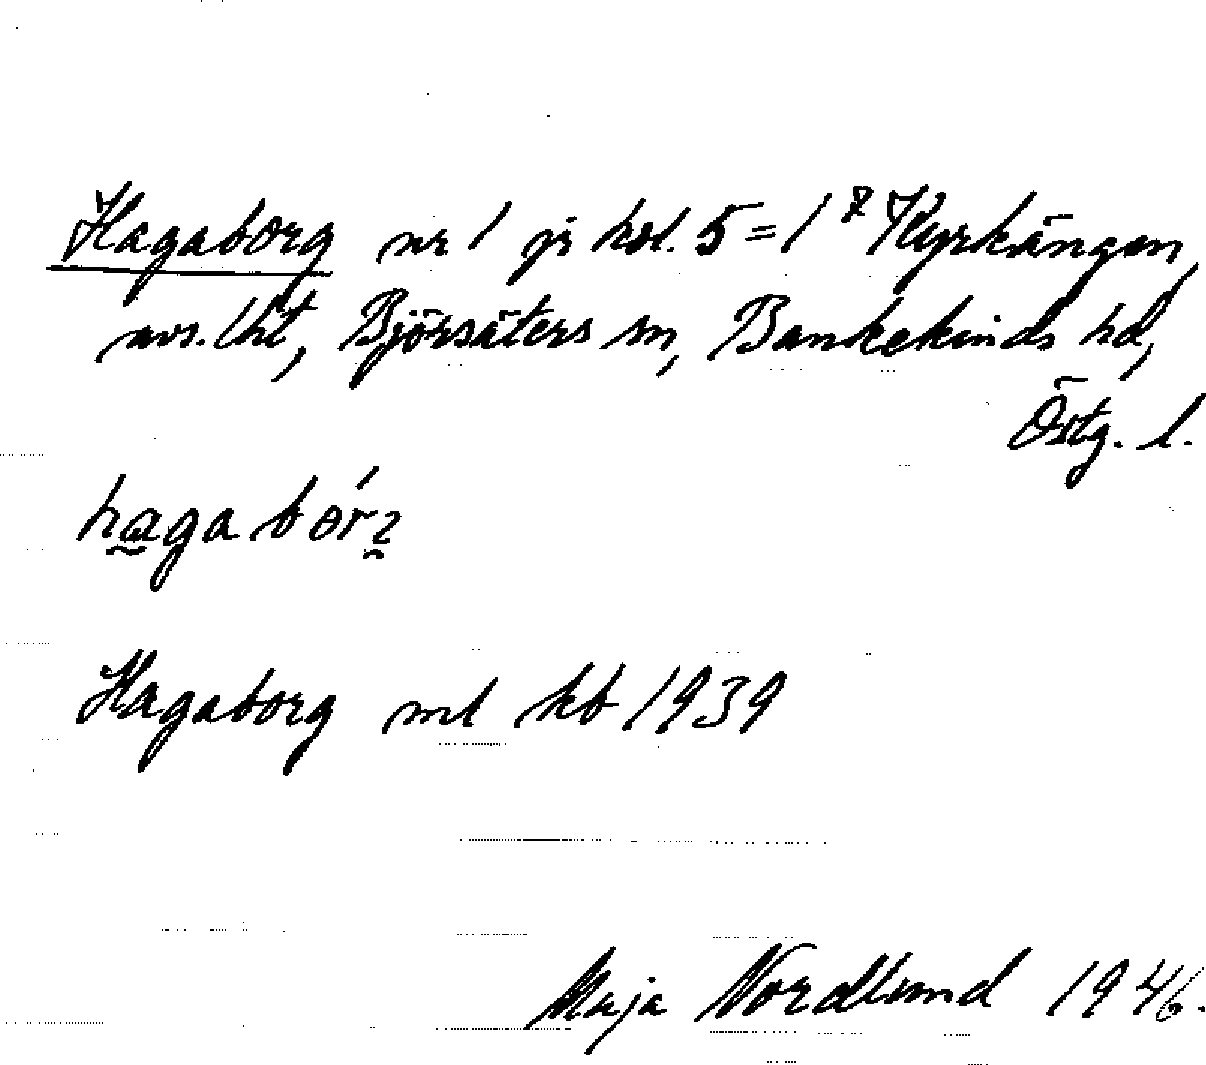 Hagaborg nr 1 jr kol. 5 = 1⁸ Kyrkängen,
avs. lht, Björsäters sn, Bankekinds hd,
Östg. l.
haga bór
Hagaborg ml kb 1939
Maja Nordlund 1946.